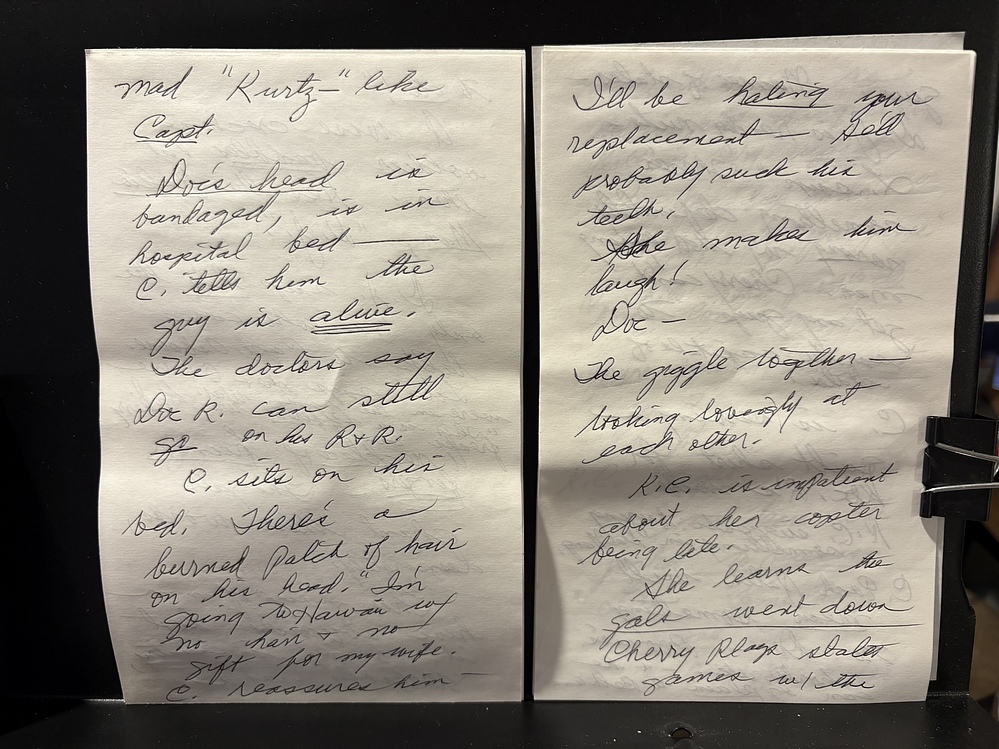 mad "Kurtz–" like
Capt.
Doc's head is
bandaged, is in
hospital bed ——
C. tells him the
guy is alive.
The doctors say
Doc R. can still
go on his R+R.
C. sits on his
bed. There's a
burned patch of hair
on his head. "I'm
going to Hawaii w/
no hair + no
gift for my wife.
C. reassures him –
I'll be hating your
replacement — He'll
probably suck his
teeth.
She makes him
laugh!
Doc –
The giggle together —
looking lovingly at
each other.
K.C. is impatient
about her copter
being late.
She learns the
gals went down
Cherry plays
games w/ the